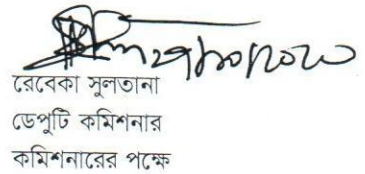 রেবেকা সুলতানা
ডেপুটি কমিশনার
কমিশনারের পক্ষে